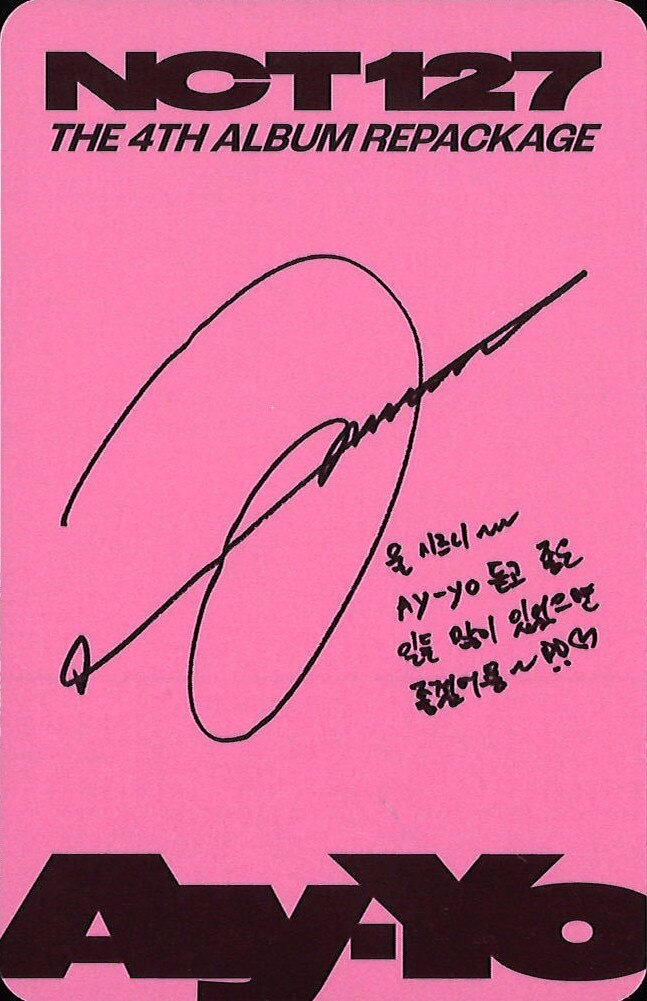 NCT 127
THE 4TH ALBUM REPACKAGE
울 시즈니 ~~
Ay-yo 듣고 좋은
일들 많이 있었으면
좋겠어용~!!♡
Ay-Yo